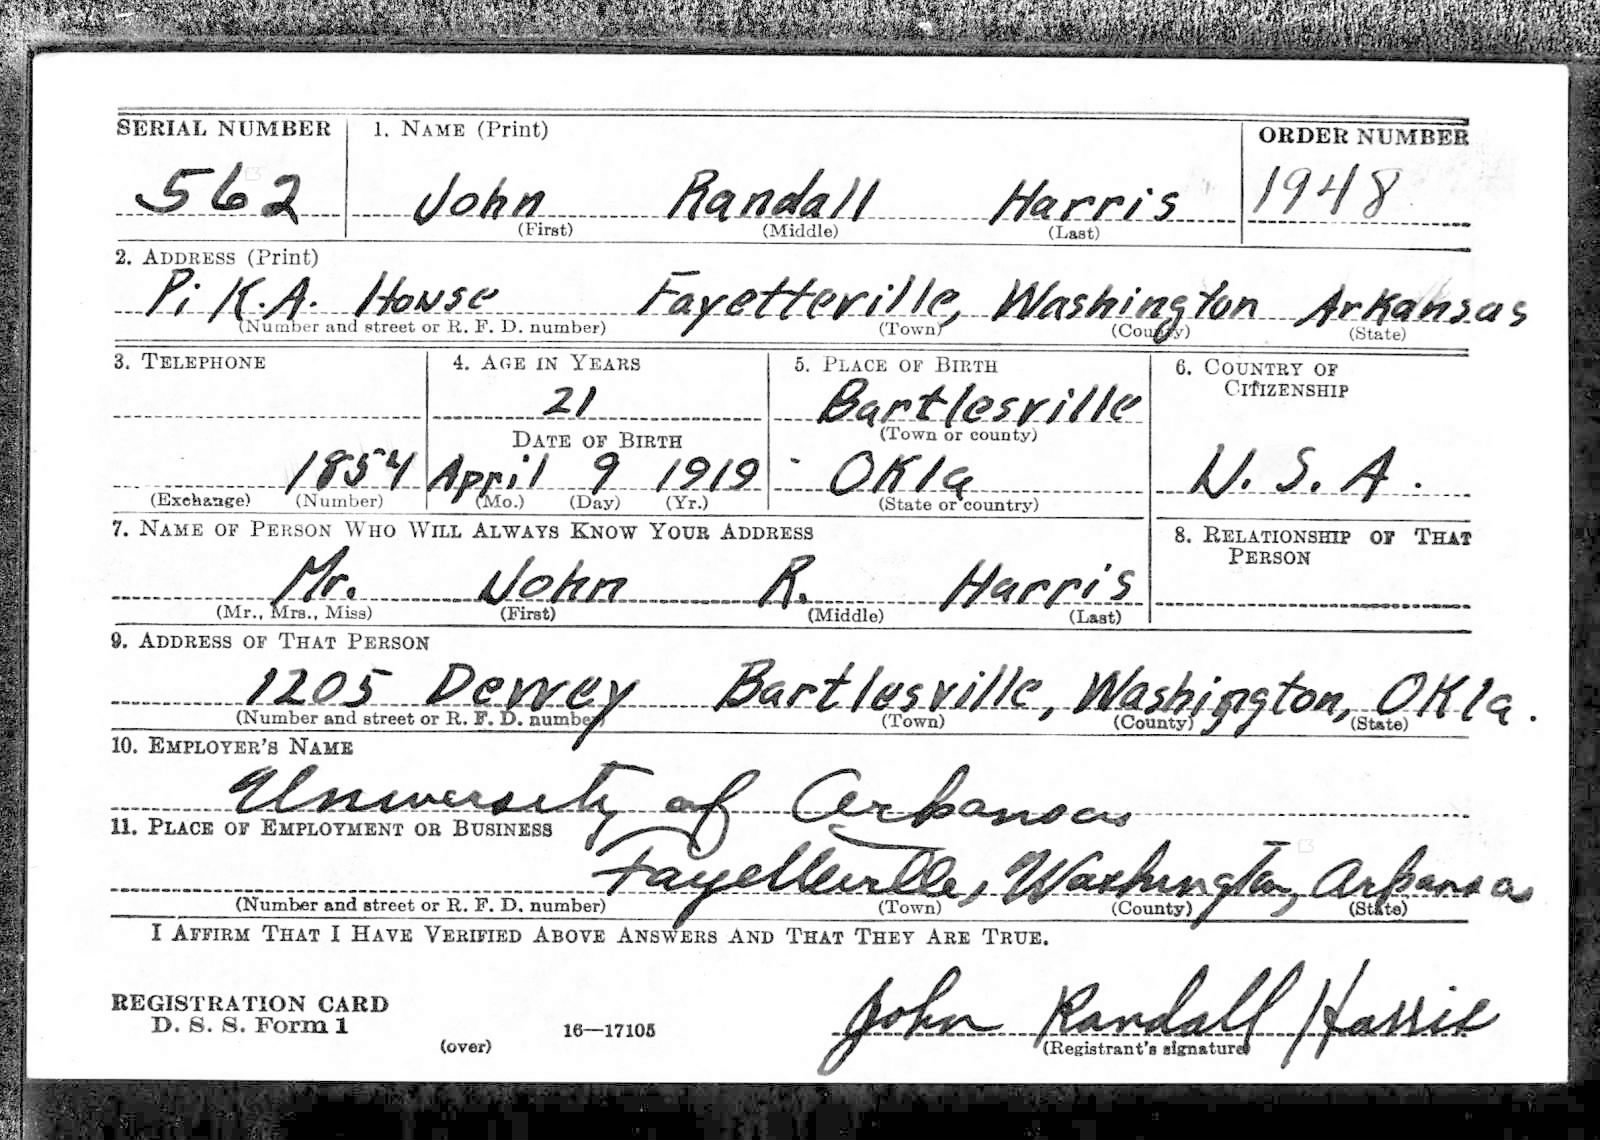 SERIAL NUMBER 1. NAME (Print) ORDER NUMBER
562 John Randall Harris 1948
(First) (Middle) (Last)
2. ADDRESS (Print)
Pi K.A. House Fayetteville, Washington Arkansas
(Number and street or R. F. D. number) (Town) (County) (State)
3. TELEPHONE 4. AGE IN YEARS 5. PLACE OF BIRTH 6. COUNTRY OF
CITIZENSHIP
21 Bartlesville
(Town or county)
DATE OF BIRTH
1854 April 9 1919 Okla U. S. A.
(Exchange) (Number) (Mo.) (Day) (Yr.) (State or country)
7. NAME OF PERSON WHO WILL ALWAYS KNOW YOUR ADDRESS 8. RELATIONSHIP OF THAT
PERSON
Mr. John R. Harris
(Mr., Mrs., Miss) (First) (Middle) (Last)
9. ADDRESS OF THAT PERSON
1205 Dewey Bartlesville, Washington, Okla.
(Number and street or R. F. D. number) (Town) (County) (State)
10. EMPLOYER'S NAME
University of Arkansas
11. PLACE OF EMPLOYMENT OR BUSINESS
Fayetteville, Washington, Arkansas
(Number and street or R. F. D. number) (Town) (County) (State)
I AFFIRM THAT I HAVE VERIFIED ABOVE ANSWERS AND THAT THEY ARE TRUE.
John Randall Harris
REGISTRATION CARD
D. S. S. Form 1 (over) 16—17105 (Registrant's signature)